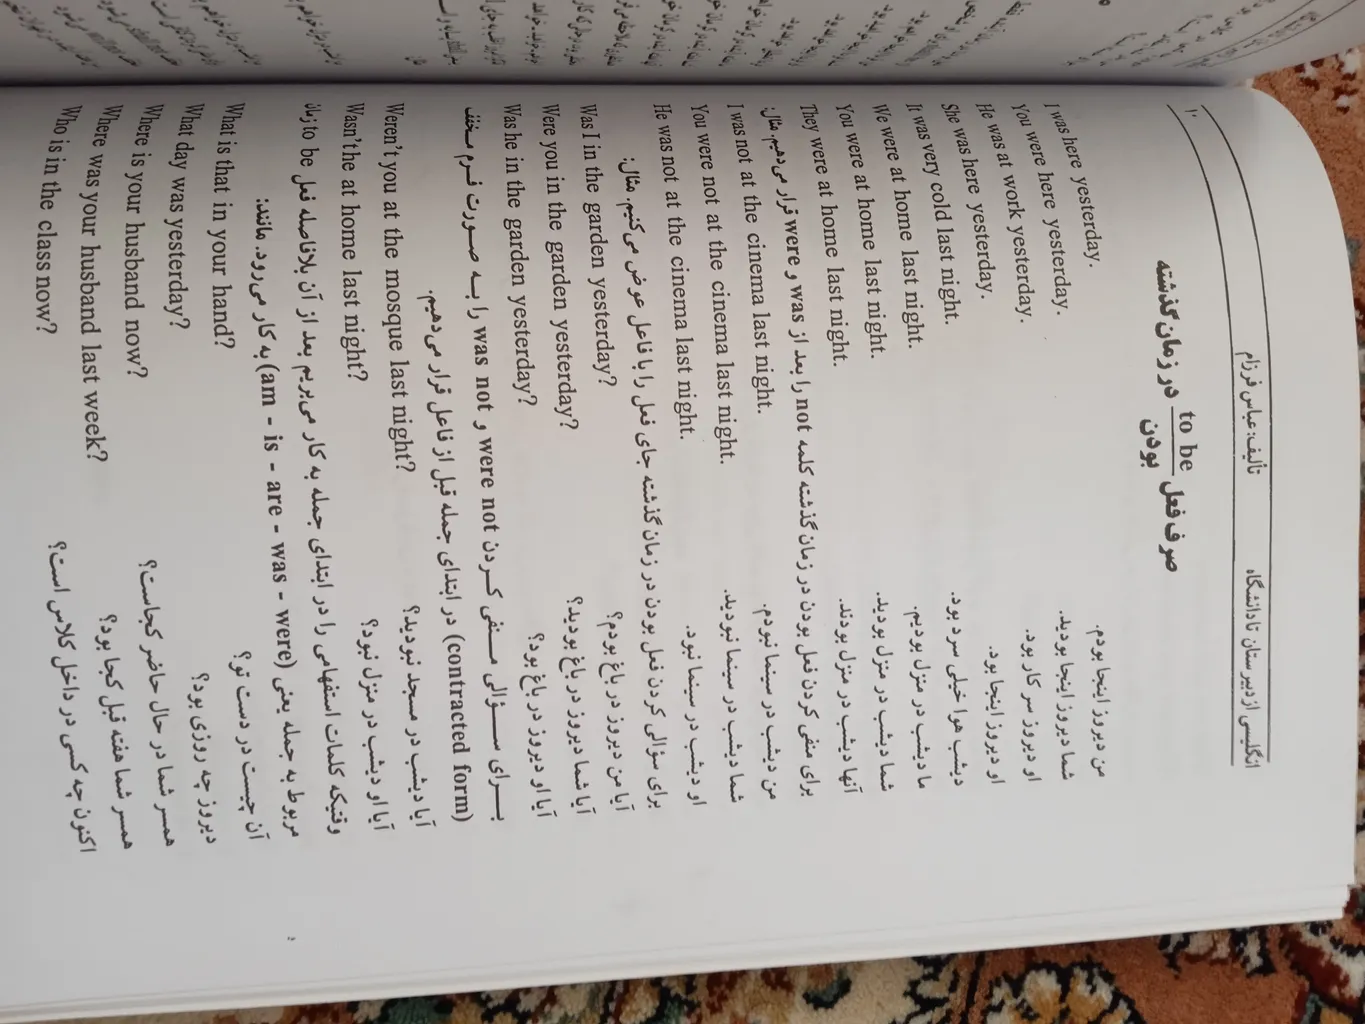 ۱۰ تألیف: عباس فرزام انگلیسی از دبیرستان تا دانشگاه
صرف فعل to be بودن در زمان گذشته
I was here yesterday. من دیروز اینجا بودم.
You were here yesterday. شما دیروز اینجا بودید.
He was at work yesterday. او دیروز سر کار بود.
She was here yesterday. او دیروز اینجا بود.
It was very cold last night. دیشب هوا خیلی سرد بود.
We were at home last night. ما دیشب در منزل بودیم.
You were at home last night. شما دیشب در منزل بودید.
They were at home last night. آنها دیشب در منزل بودند.
برای منفی کردن فعل بودن در زمان گذشته کلمه not را بعد از was و were قرار می‌دهیم. مثال:
I was not at the cinema last night. من دیشب در سینما نبودم.
You were not at the cinema last night. شما دیشب در سینما نبودید.
He was not at the cinema last night. او دیشب در سینما نبود.
برای سؤالی کردن فعل بودن در زمان گذشته جای فعل را با فاعل عوض می‌کنیم. مثال:
Was I in the garden yesterday? آیا من دیروز در باغ بودم؟
Were you in the garden yesterday? آیا شما دیروز در باغ بودید؟
Was he in the garden yesterday? آیا او دیروز در باغ بود؟
برای سؤالی منفی کردن were not و was not را به صورت فرم مخفف
(contracted form) در ابتدای جمله قبل از فاعل قرار می‌دهیم.
Weren't you at the mosque last night? آیا دیشب در مسجد نبودید؟
Wasn't he at home last night? آیا او دیشب در منزل نبود؟
وقتیکه کلمات استفهامی را در ابتدای جمله به کار می‌بریم بعد از آن بلافاصله فعل to be زمان
مربوط به جمله یعنی (am - is - are - was - were) به کار می‌رود. مانند:
What is that in your hand? آن چیست در دست تو؟
What day was yesterday? دیروز چه روزی بود؟
Where is your husband now? همسر شما در حال حاضر کجاست؟
Where was your husband last week? همسر شما هفته قبل کجا بود؟
Who is in the class now? اکنون چه کسی در داخل کلاس است؟